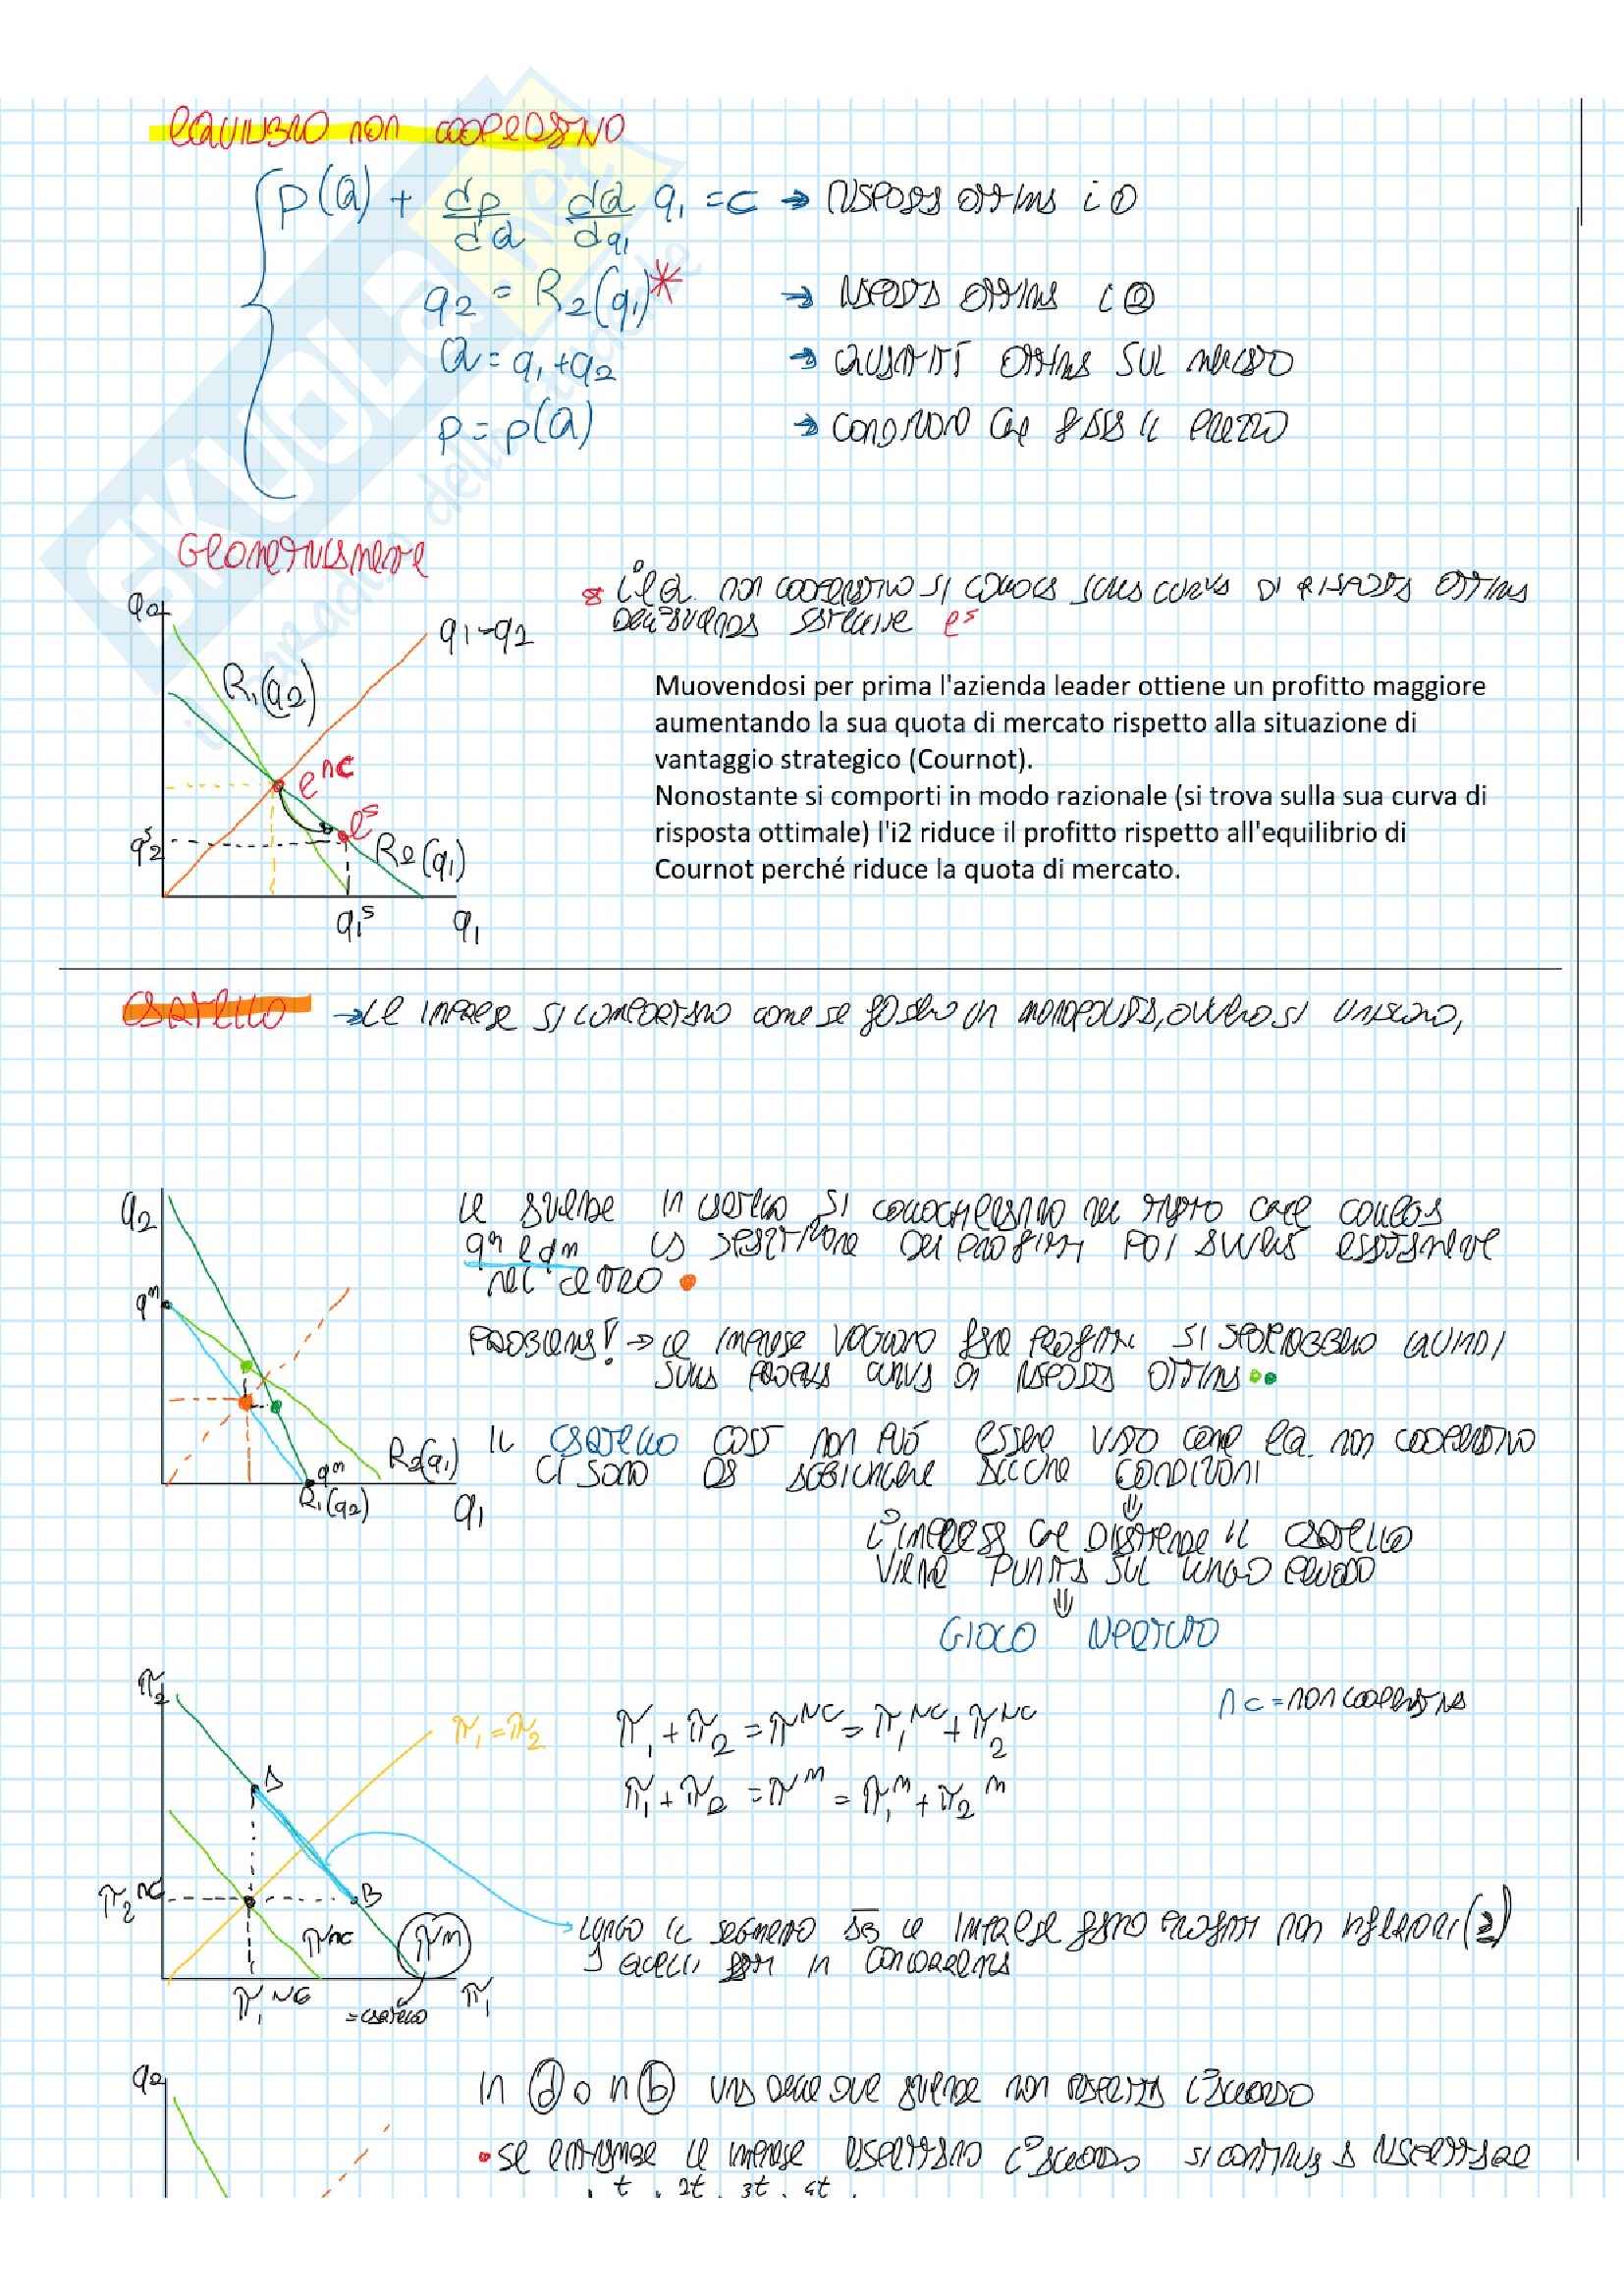 EQUILIBRIO NON COOPERATIVO
p(Q) + dp/dQ dQ/dq1 q1 = c → RISPOSTA OTTIMA i ①
q2 = R2(q1)* → RISPOSTA OTTIMA i ②
Q = q1 + q2 → QUANTITÀ OTTIMA SUL MERCATO
p = p(Q) → CONDIZIONE CHE FISSA IL PREZZO
GEOMETRICAMENTE
* L'EQ. NON COOPERATIVO SI COLLOCA SULLA CURVA DI RISPOSTA OTTIMA
DELL'AZIENDA es
q2
q1=q2
R1(q2)
enc
es
q2s
R2(q1)
q1s
q1
Muovendosi per prima l'azienda leader ottiene un profitto maggiore
aumentando la sua quota di mercato rispetto alla situazione di
vantaggio strategico (Cournot).
Nonostante si comporti in modo razionale (si trova sulla sua curva di
risposta ottimale) l'i2 riduce il profitto rispetto all'equilibrio di
Cournot perché riduce la quota di mercato.
CARTELLO → LE IMPRESE SI COMPORTANO COME SE FOSSERO IN MONOPOLIO, OVVERO SI UNISCONO,
q2
qm
R2(q1)
qm
R1(q2)
q1
LE AZIENDE IN CARTELLO SI COLLOCHERANNO NEL TRATTO CHE COLLEGA
qm e qm LA SPARTIZIONE DEI PROFITTI POI AVVERRÀ ESATTAMENTE
NEL CENTRO
PROBLEMA! → LE IMPRESE VOGLIONO FARE PROFITTI SI SPOSTEREBBERO QUINDI
SULLA PROPRIA CURVA DI RISPOSTA OTTIMA
IL CARTELLO COSÌ NON PUÒ ESSERE VISTO COME EQ. NON COOPERATIVO
CI SONO DA AGGIUNGERE ALCUNE CONDIZIONI
⇓
L'IMPRESA CHE DISATTENDE IL CARTELLO
VIENE PUNITA SUL LUNGO PERIODO
⇓
GIOCO RIPETUTO
nc = NON COOPERATIVA
π2
π1=π2
A
B
π2NC
πnc
πm
π1NC
=CARTELLO
π1
π1 + π2 = πNC = π1NC + π2NC
π1 + π2 = πm = π1m + π2m
LUNGO IL SEGMENTO AB LE IMPRESE FANNO PROFITTI NON INFERIORI (≥)
A QUELLI FATTI IN CONCORRENZA
q2
IN ⓓ O IN ⓑ UNA DELLE DUE AZIENDE NON RISPETTA L'ACCORDO
• SE ENTRAMBE LE IMPRESE RISPETTANO L'ACCORDO SI CONTINUA A RISPETTARE
t 2t 3t 4t
SKUOLA.net